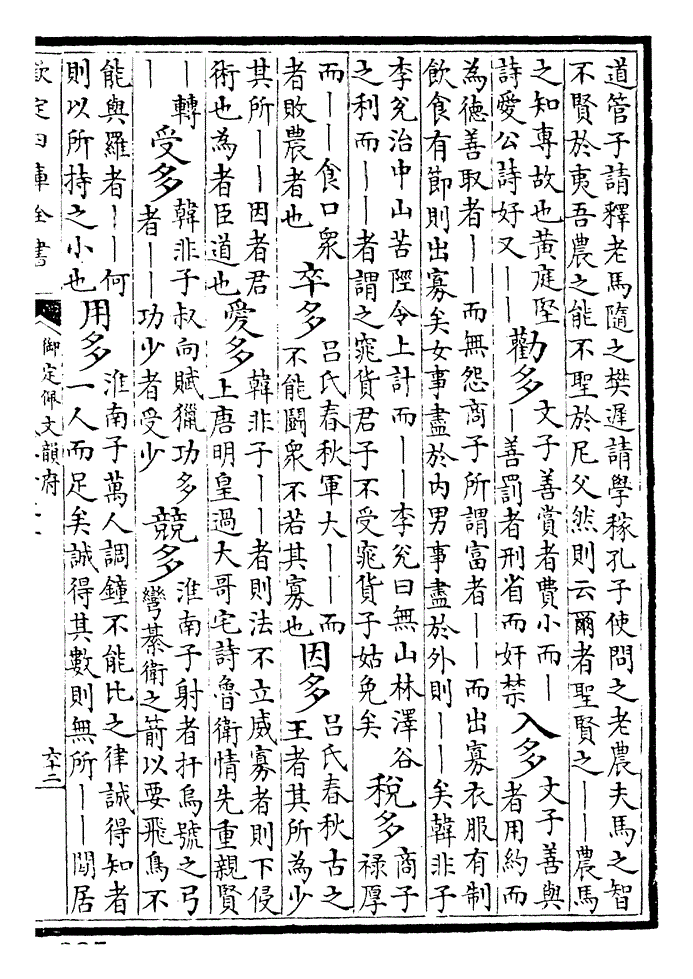 道管子請釋老馬隨之樊遲請學稼孔子使問之老農夫馬之智
不賢於夷吾農之能不聖於尼父然則云爾者聖賢之——農馬
之知專故也黃庭堅
詩愛公詩好又——
勸多
文子善賞者費小而—
—善罰者刑省而奸禁
入多
文子善與
者用約而
為德善取者——而無怨商子所謂富者——而出寡衣服有制
飲食有節則出寡矣女事盡於內男事盡於外則——矣韓非子
李兊治中山苦陘令上計而——李兊曰無山林澤谷
之利而——者謂之窕貨君子不受窕貨子姑免矣
稅多
商子
祿厚
而——食口衆
者敗農者也
卒多
呂氏春秋軍大——而
不能鬭衆不若其寡也
因多
呂氏春秋古之
王者其所為少
其所——因者君
術也為者臣道也
愛多
韓非子——者則法不立威寡者則下侵
上唐明皇過大哥宅詩魯衛情先重親賢
—轉
—
受多
韓非子叔向賦獵功多
者——功少者受少
競多
淮南子射者扞烏號之弓
彎棊衛之箭以要飛鳥不
能與羅者——何
則以所持之小也
用多
淮南子萬人調鐘不能比之律誠得知者
一人而足矣誠得其數則無所——閻居
欽定四庫全書
御定佩文韻府
六十二